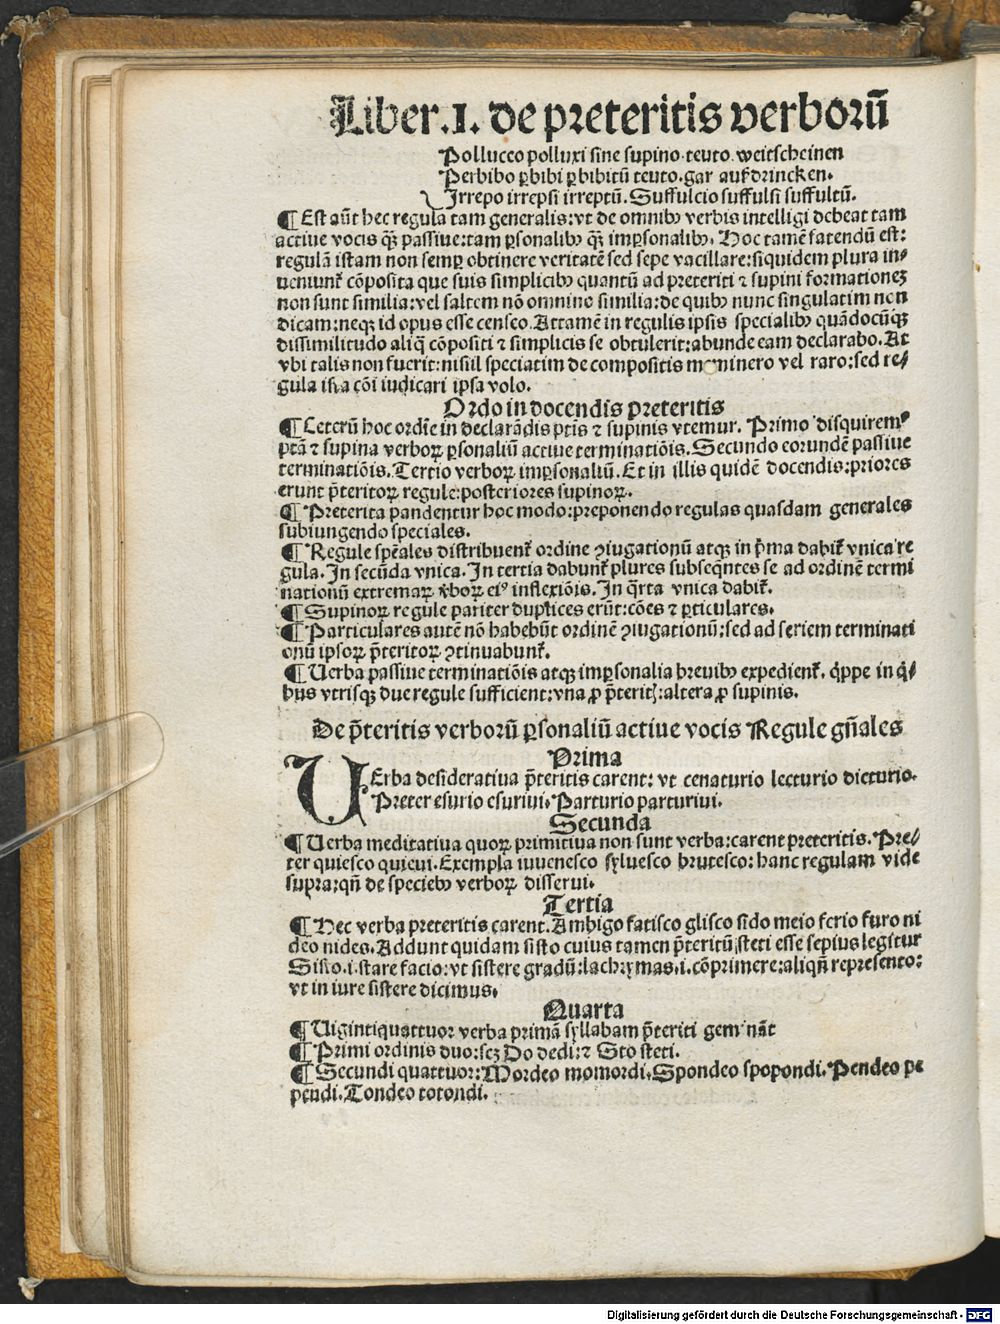 Liber .I. de preteritis verborū
Polluceo polluxi sine supino teuto weitscheinen
Perbibo ꝑbibi ꝑbibitū teuto. gar aufdrincken.
Irrepo irrepsi irreptū. Suffulcio suffulsi suffultū.
¶ Est aūt hec regula tam generalis: vt de omnibꝰ verbis intelligi debeat tam
actiue vocis qꝫ̄ passiue: tam ꝑsonalibꝰ qꝫ̄ imꝑsonalibꝰ. Hoc tamē fatendū est:
regulā istam non semꝑ obtinere veritatē sed sepe vacillare: siquidem plura in⸗
ueniunt̄ cōposita que suis simplicibꝰ quantū ad preteriti ⁊ supini formationeꝫ
non sunt similia: vel saltem nō omnino similia: de quibꝰ nunc singulatim non
dicam: neqꝫ id opus esse censeo. Attamē in regulis ipsis specialibꝰ quādocūqꝫ
dissimilitudo aliq̄ cōpositi ⁊ simplicis se obtulerit: abunde eam declarabo. At
vbi talis non fuerit: nisiil speciatim de compositis meminero vel raro: sed re⸗
gula ista cōi iudicari ipsa volo.
Ordo in docendis preteritis
¶ Ceterū hoc ordīe in declarādis ꝑtīs ⁊ supinis vtemur. Primo disquiremꝰ
ꝑtā ⁊ supina verboꝝ ꝑsonaliū actiue terminatiōis. Secundo eorundē passiue
terminatiōis. Tertio verboꝝ imꝑsonaliū. Et in illis quidē docendis: priores
erunt p̄teritoꝝ regule: posteriores supinoꝝ.
¶ Preterita pandentur hoc modo: preponendo regulas quasdam generales
subiungendo speciales.
¶ Regule spēales distribuent̄ ordine ꝯiugationū atqꝫ in p̄ma dabit̄ vnica re
gula. In secūda vnica. In tertia dabunt̄ plures subseq̄ntes se ad ordinē termi
nationū extremaꝝ v̄boꝝ eiꝰ inflexiōis. In q̄rta vnica dabit̄.
¶ Supinoꝝ regule pariter duplices erūt: cōes ⁊ ꝑticulares.
¶ Particulares autē nō habebūt ordinē ꝯiugationū: sed ad seriem terminati
onū ipsoꝝ p̄teritoꝝ ꝯtinuabunt̄.
¶ Uerba passiue terminatiōis atqꝫ imꝑsonalia breuibꝰ expedient̄. q̇ppe in q̇⸗
bus vtrisqꝫ due regule sufficient: vna ꝓ p̄teritꝭ: altera ꝓ supinis.
De p̄teritis verborū ꝑsonaliū actiue vocis Regule gn̄ales
Prima
UErba desideratiua p̄teritis carent: vt cenaturio lecturio dicturio.
Preter esurio esuriui. Parturio parturiui.
Secunda
¶ Uerba meditatiua quoꝝ primitiua non sunt verba: carent preteritis. Pre⸗
ter quiesco quieui. Exempla iuuenesco syluesco brutesco: hanc regulam vide
supra: qn̄ de speciebꝰ verboꝝ disserui.
Tertia
¶ Hec verba preteritis carent. Ambigo fatisco glisco sido meio ferio furo ni
deo nides. Addunt quidam sisto cuius tamen p̄teritū steti esse sepius legitur
Sisto .i. stare facio: vt sistere gradū: lachrymas .i. cōprimere: aliqn̄ represento:
vt in iure sistere dicimus.
Quarta
¶ Uigintiquattuor verba primā syllabam p̄teriti gemināt
¶ Primi ordinis duo: seꝫ Do dedi: ⁊ Sto steti.
¶ Secundi quattuor: Mordeo momordi. Spondeo spopondi. Pendeo pe
pendi. Tondeo totondi.
Digitalisierung gefördert durch die Deutsche Forschungsgemeinschaft - DFG